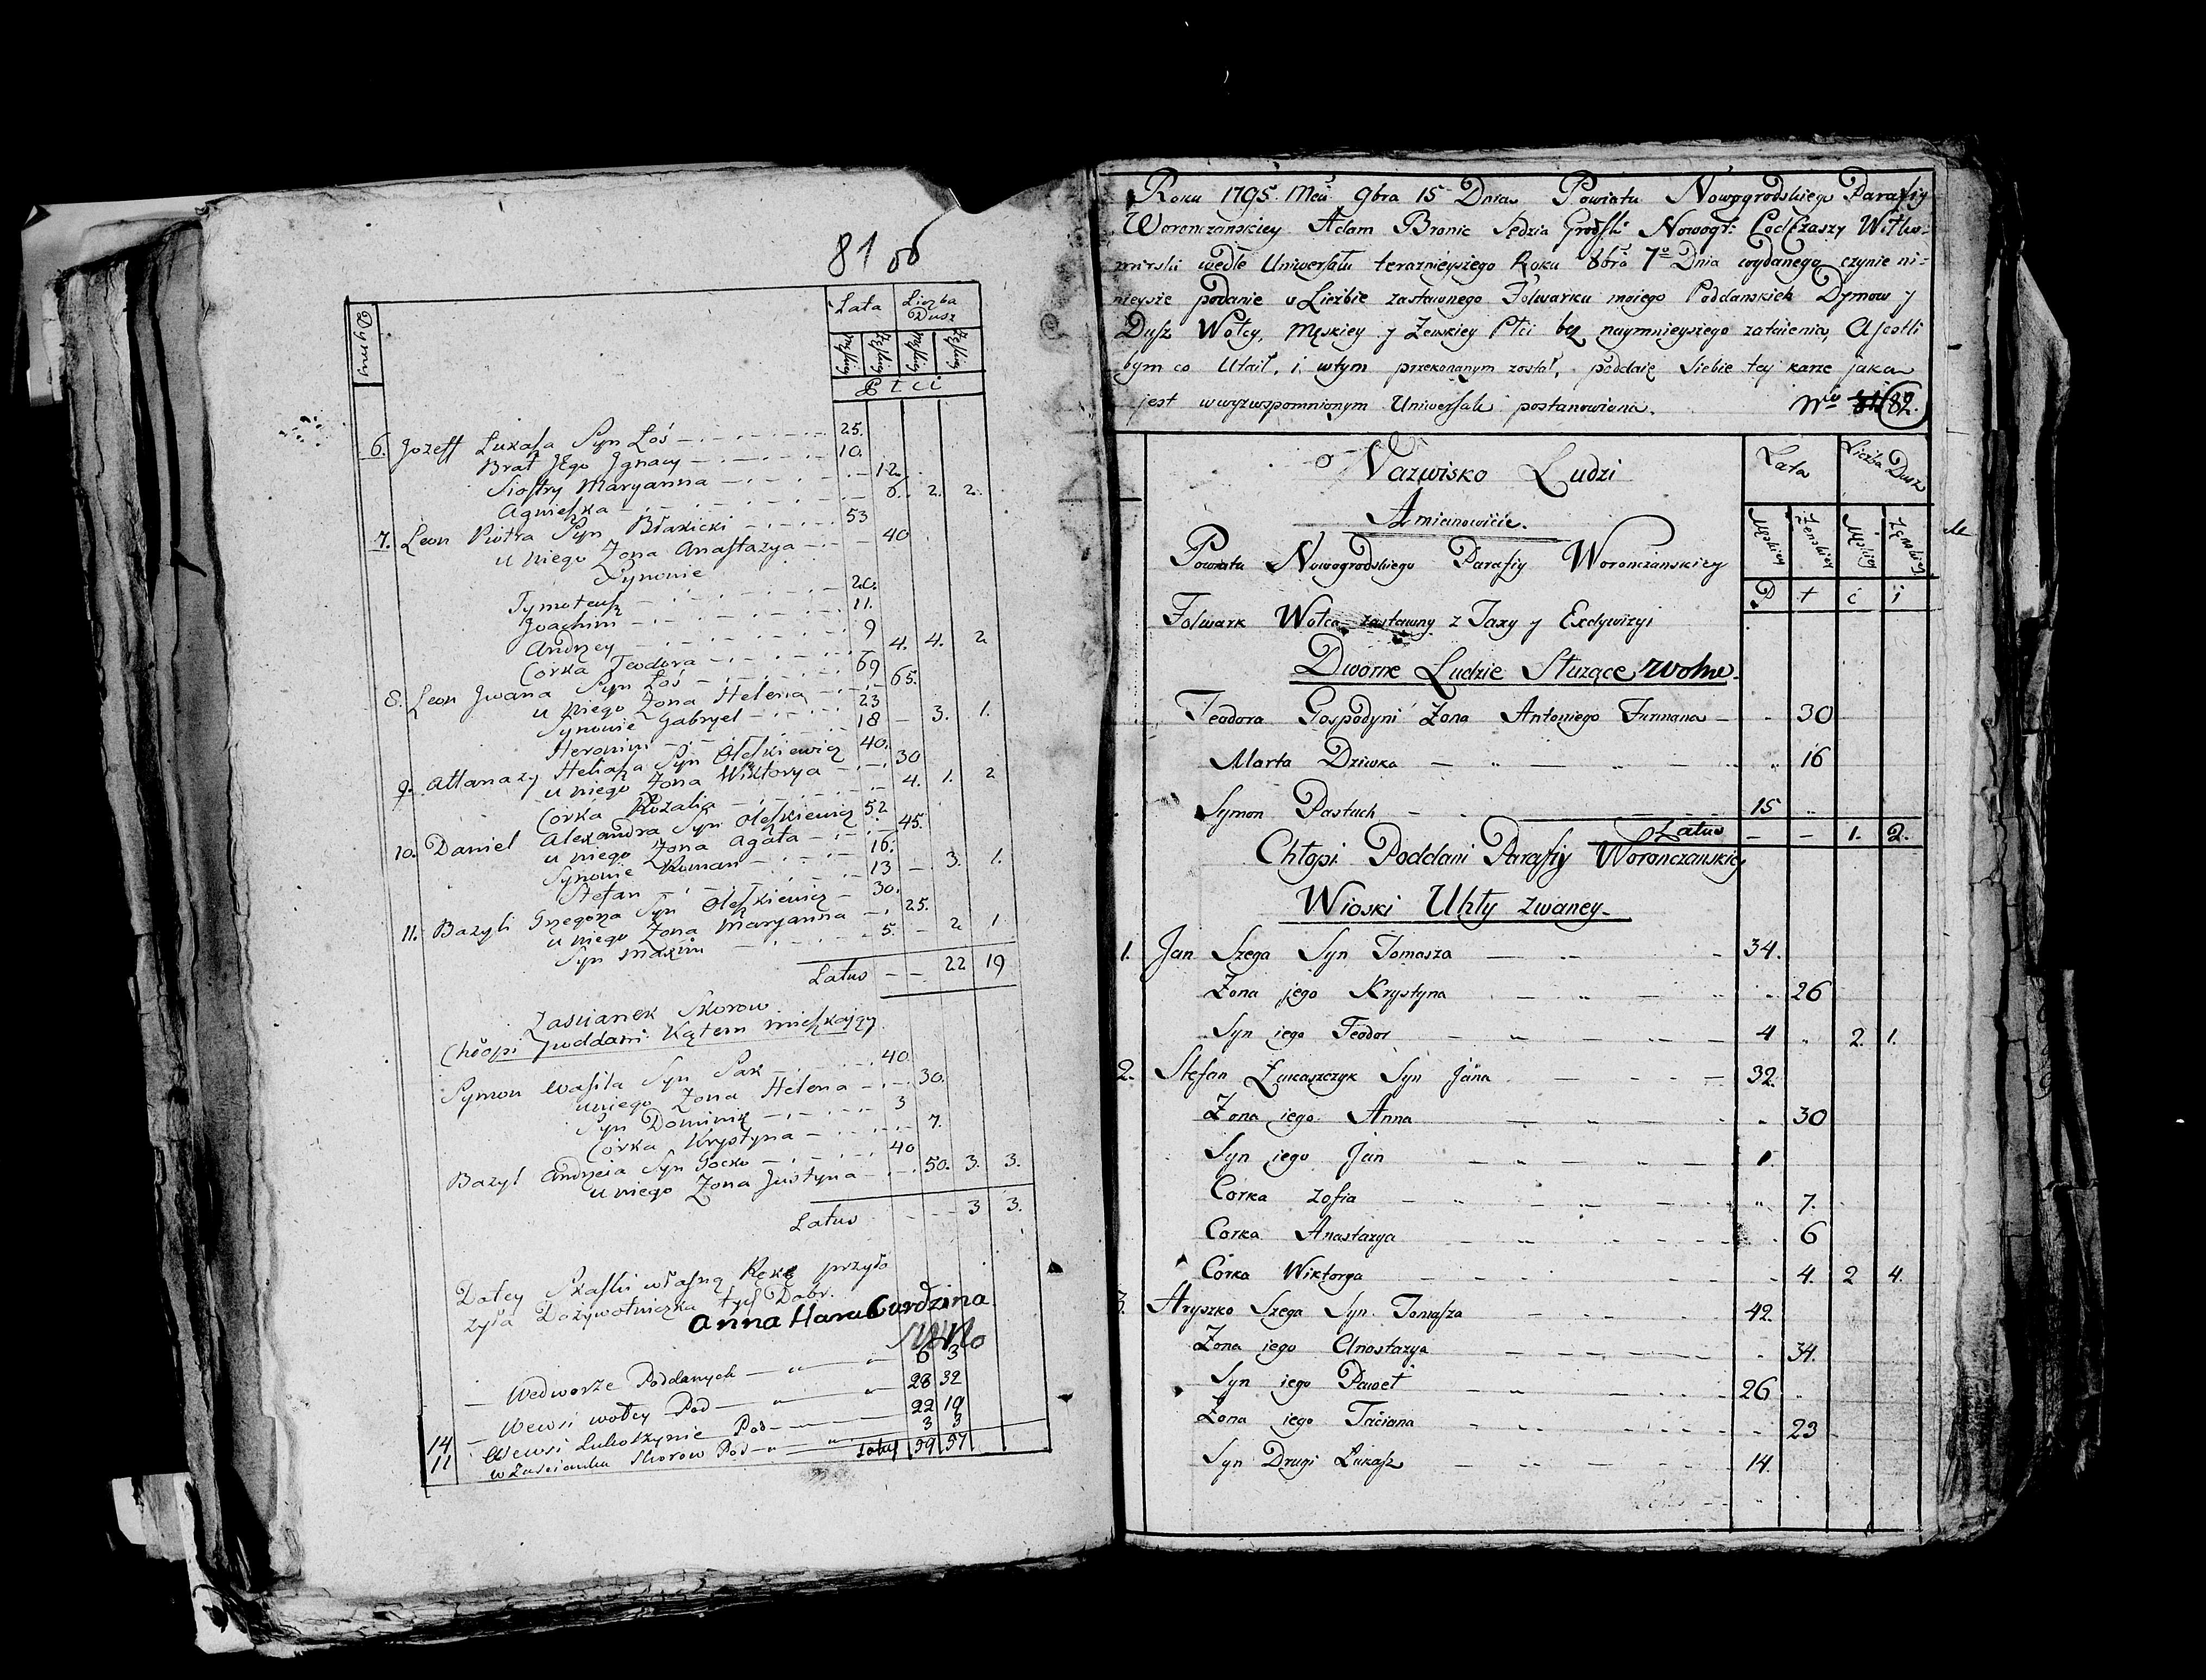 81 об
Dymy
Lata Liczba Dusz
Męskiey Żeńskiey Męskiey Żeńskiey
Płci
6. Jozeff Lukasza Syn Łoś 25.
Brat Jego Jgnacy 10.
Siostry Maryanna 12
Agnieszka 6. 2. 2.
7. Leon Piotra Syn Błakicki 53
u niego Zona Anastazya 40
Synowie
Tymoteusz 20.
Joachim 11.
Andrzey 9
Corka Teodora 4. 4. 2
8. Leon Jwana Syn Łoś 69
u niego Zona Helena 65.
Synowie Gabryel 23
Heronim 18 3. 1.
9. Attanazy Heliasza Syn Oleszkiewicz 40.
u niego Zona Wiktorya 30
Corka Rozalia 4. 1. 2
10. Daniel Alexandra Syn Oleszkiewicz 52
u niego Zona Agata 45.
Synowie Roman 16.
Stefan 13 3. 1.
11. Bazyli Grzegorza Syn Oleszkiewicz 30.
u niego Zona Maryanna 25.
Syn Maxim 5. 2 1.
Latus 22 19
Zascianek Skorow
Chłopi Poddani Kątem mieszkający
Symon Wasila Syn Sak 40
u niego Zona Helena 30.
Syn Dominik 3
Corka Krystyna 7.
Bazyl Andrzeia Syn Gocko 40
u niego Zona Justyna 50. 3. 3.
Latus 3 3.
Datey Skaski własną Ręką przyło
zyła Dożywotniczka tych Dobr.
Anna Haraburdzina
We dworze Poddanych 6 3
14 We wsi Wołcy Pod 28 32
11 We wsi Luboszynie Pod 22 19
w Zascianku Skorow Pod 3 3
Latus 59 57
Roku 1795 Mca 9bra 15 Dnia Powiatu Nowogrodskiego Parafiy
Woronczanskiey Adam Bronic Sędzia Grodski Nowogr: Podczaszy Wiłko-
mirski wedle Uniwersału teraznieyszego Roku 8bra 7º Dnia wydanego czynie ni-
nieysze podanie o Liczbie zastawnego Folwarku moiego Poddanskich Dymow y
Dusz Wołcy, Męskiey y Zenskiey Płci bez naymnieyszego zataienia, A jeśli
bym co Utaił, i wtym przekonanym został, poddaię siebie tey karze jaka
jest w wyzwspomnionym Uniwersale postanowiona. Nro 82.
Nazwisko Ludzi
Lata Liczba Dusz
Amianowicie.
Męskiey Żenskiey Męskiey Żenskiey
Powiatu Nowogrodskiego Parafiy Woronczanskiey
P ł c i
Folwark Wołca zastawny z Taxy y Exdywizyi
Dworne Ludzie Służące Wolne
Teodora Gospodyni Zona Antoniego Furmana 30
Marta Dziwka 16
Symon Pastuch 15
Latus 1. 2.
Chłopi Poddani Parafiy Woronczanskiey
Wioski Uhły zwaney
1. Jan Szega Syn Tomasza 34.
Zona jego Krystyna 26
Syn iego Teodor 4 2. 1.
2. Stefan Łukaszczyk Syn Jana 32.
Zona iego Anna 30
Syn iego Jan 1.
Corka Zofia 7.
Corka Anastazya 6
Corka Wiktorya 4. 2 4.
3. Hryszko Szega Syn Tomasza 42.
Zona iego Anastazya 34.
Syn iego Paweł 26
Zona iego Taciana 23
Syn Drugi Łukasz 14.